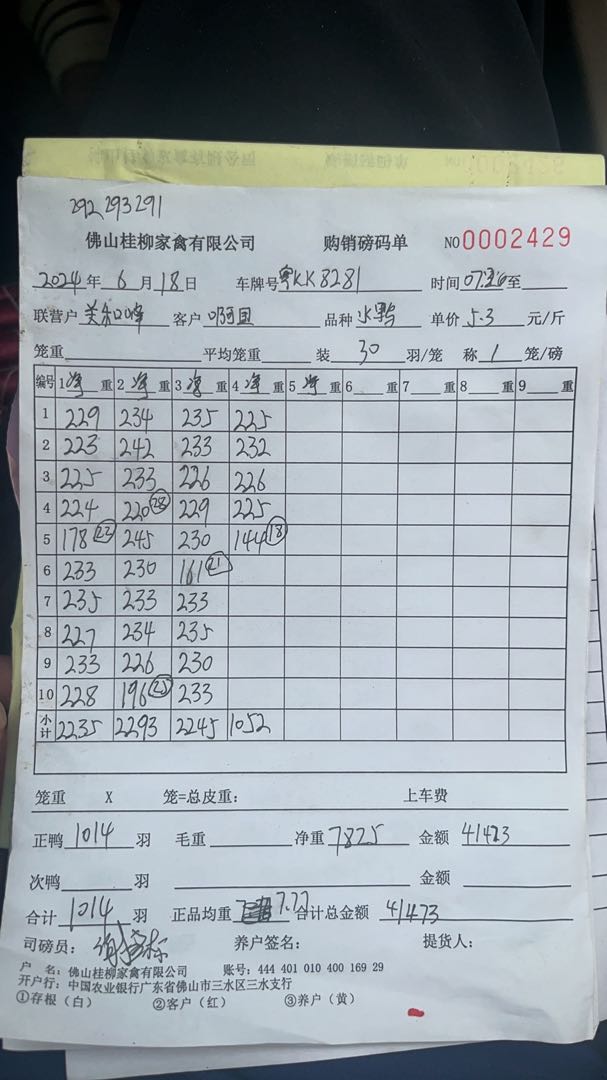 292 293 291
佛山桂柳家禽有限公司 购销磅码单 NO 0002429
2024年 6月 18日 车牌号 粤KK8281 时间 07: 至
联营户 客户 品种 水鸭 单价 5.3 元/斤
笼重 平均笼重 装 30 羽/笼 称 1 笼/磅
编号 1 净 重 2 净 重 3 净 重 4 净 重 5 净 重 6 重 7 重 8 重 9 重
1 229 234 235 225
2 223 242 233 232
3 225 233 226 226
4 224 220(28) 229 225
5 178(22) 245 230 144(18)
6 233 230 161(21)
7 235 233 233
8 227 234 235
9 233 226 230
10 228 196(25) 233
小计 2235 2293 2245 1052
笼重 X 笼=总皮重: 上车费
正鸭 1014 羽 毛重 净重 7825 金额 41473
次鸭 羽 金额
合计 1014 羽 正品均重 7.72 合计总金额 41473
司磅员: 养户签名: 提货人:
户 名: 佛山桂柳家禽有限公司 账号: 444 401 010 400 169 29
开户行: 中国农业银行广东省佛山市三水区三水支行
①存根（白） ②客户（红） ③养户（黄）